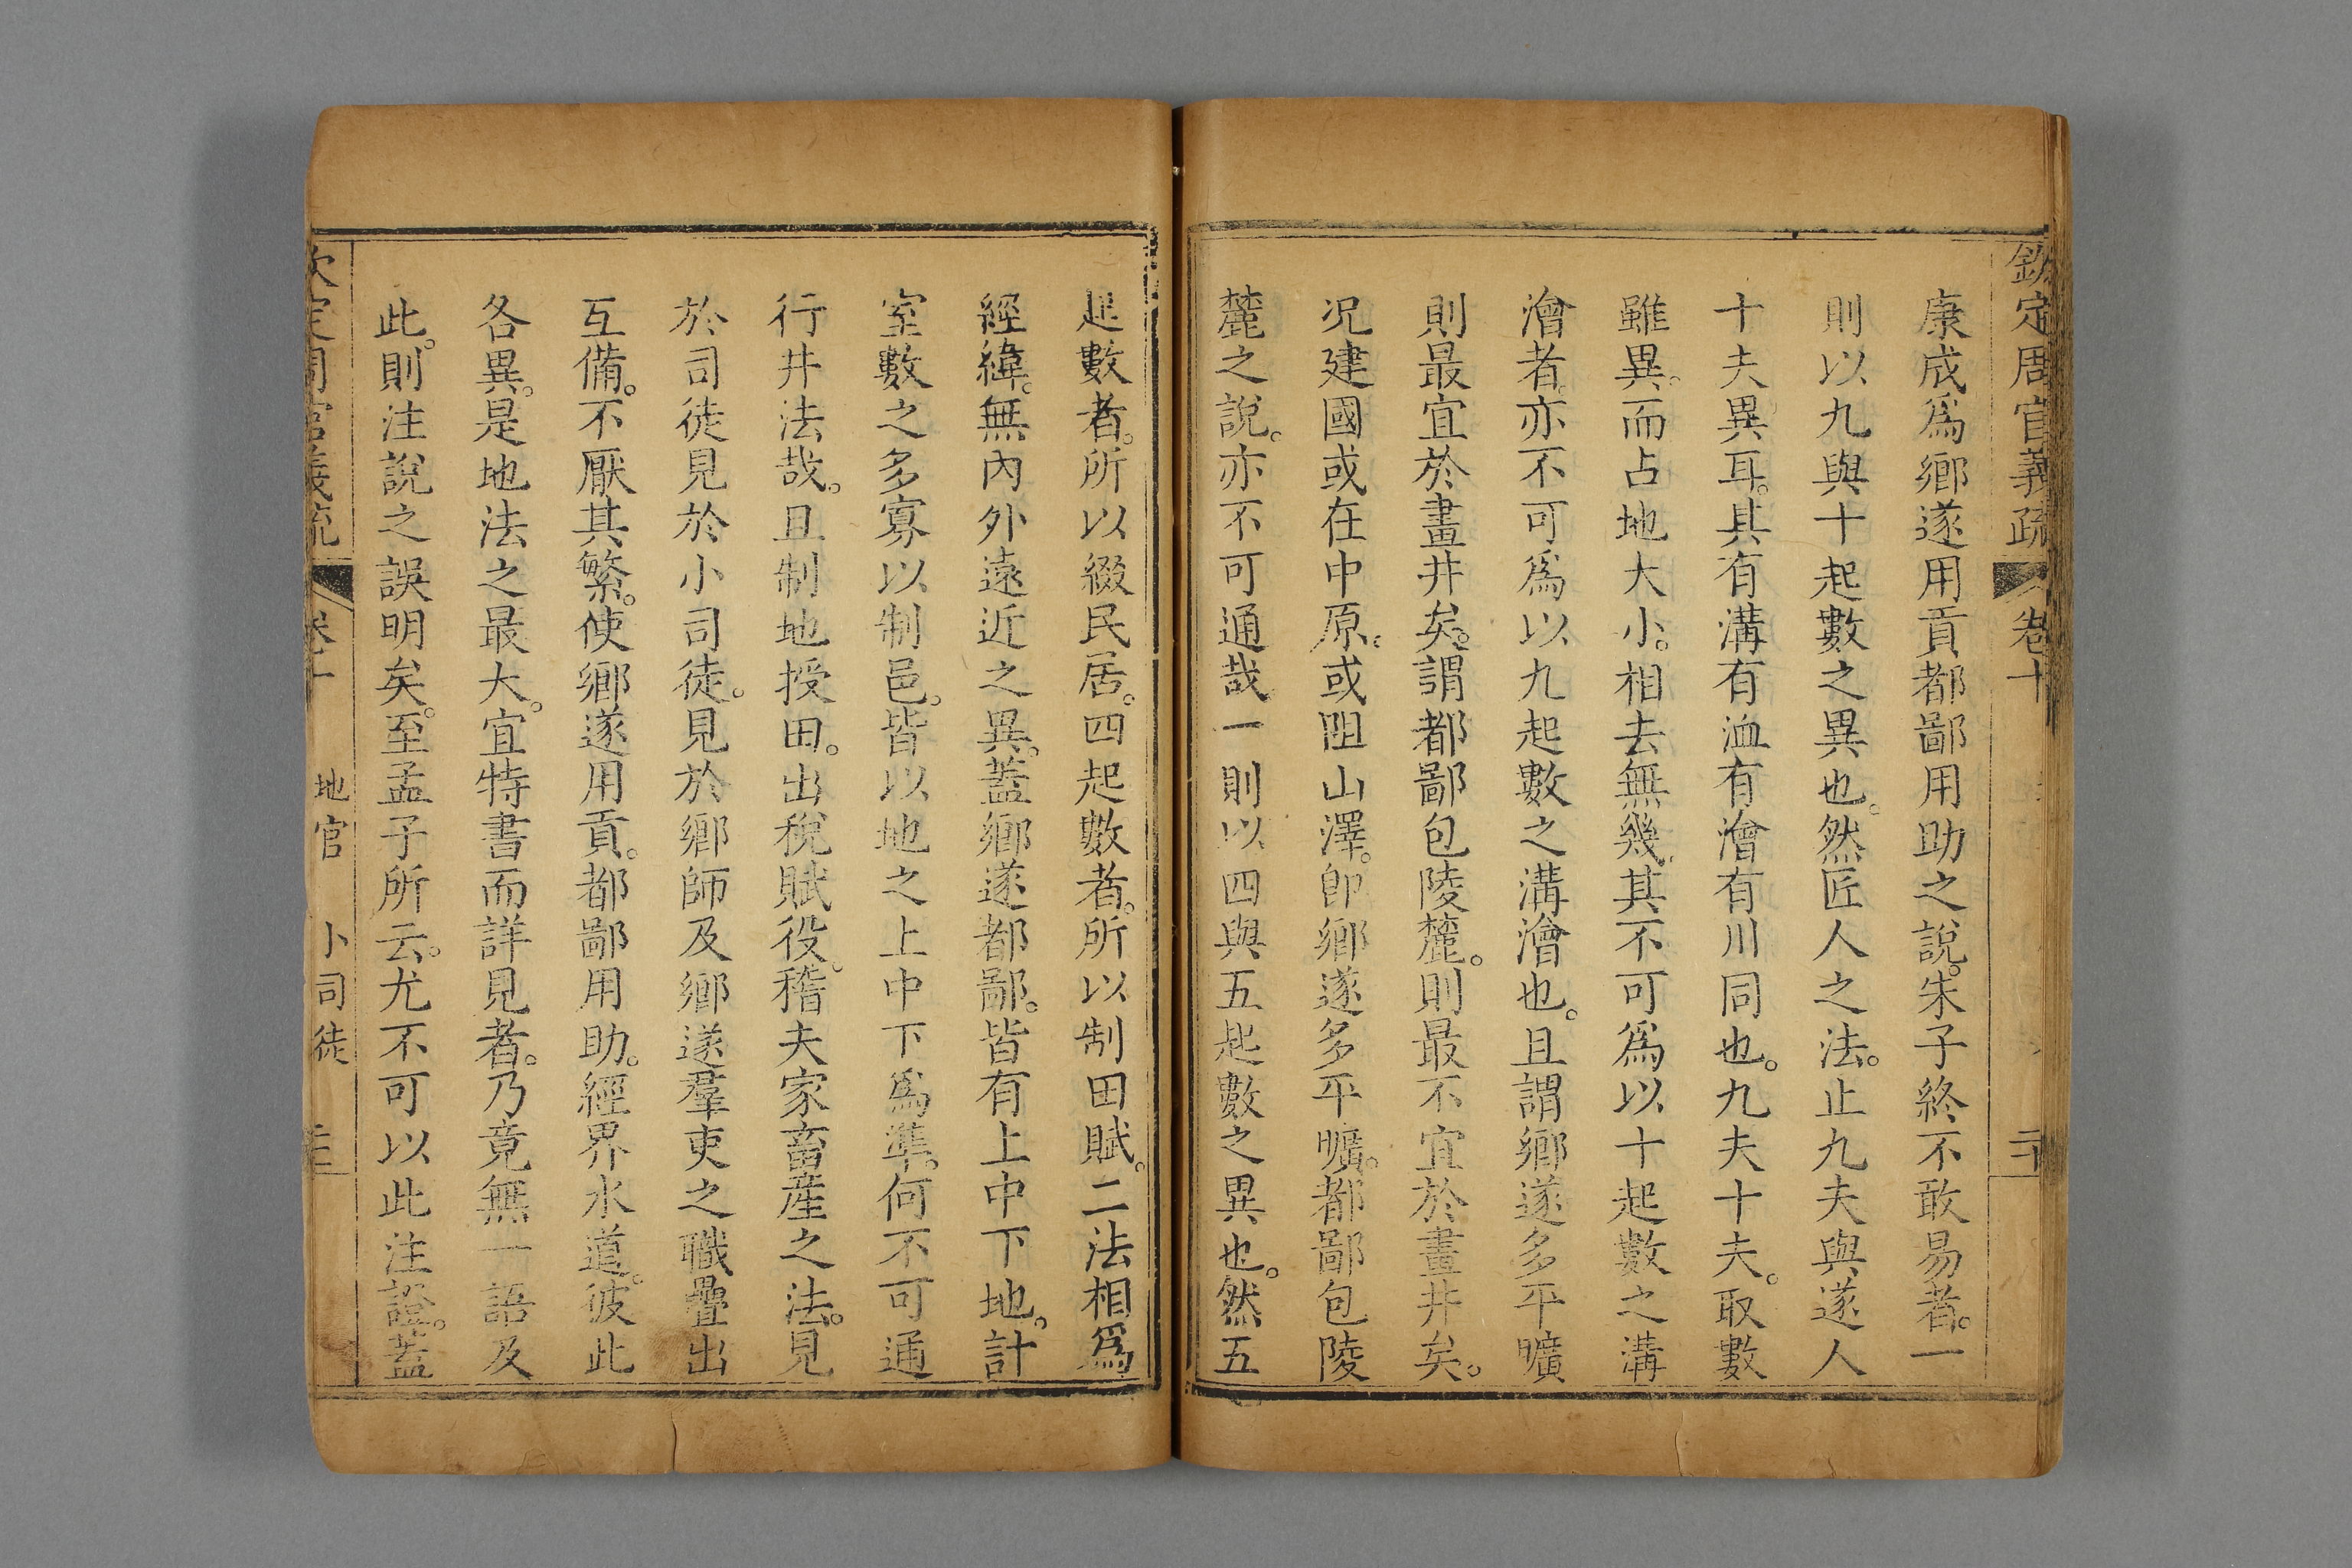 欽定周官義疏 卷十 二十
康成爲鄉遂用貢都鄙用助之說。朱子終不敢易者。一
則以九與十起數之異也。然匠人之法。止九夫與遂人
十夫異耳。其有溝有洫有澮有川同也。九夫十夫。取數
雖異。而占地大小。相去無幾。其不可爲以十起數之溝
澮者。亦不可爲以九起數之溝澮也。且謂鄉遂多平曠
則最宜於畫井矣。謂都鄙包陵麓。則最不宜於畫井矣。
况建國或在中原。或阻山澤。卽鄉遂多平曠。都鄙包陵
麓之說。亦不可通哉一則以四與五起數之異也。然五
起數者。所以綴民居。四起數者。所以制田賦。二法相爲
經緯。無內外遠近之異。蓋鄉遂都鄙。皆有上中下地。計
室數之多寡以制邑。皆以地之上中下爲準。何不可通
行井法哉。且制地授田。出稅賦役。稽夫家畜產之法。見
於司徒見於小司徒。見於鄉師及鄉遂羣吏之職疊出
互備。不厭其繁。使鄉遂用貢。都鄙用助。經界水道。彼此
各異。是地法之最大。宜特書而詳見者。乃竟無一語及
此。則注說之誤明矣。至孟子所云。尤不可以此注證。蓋
欽定周官義疏 卷十 地官 小司徒